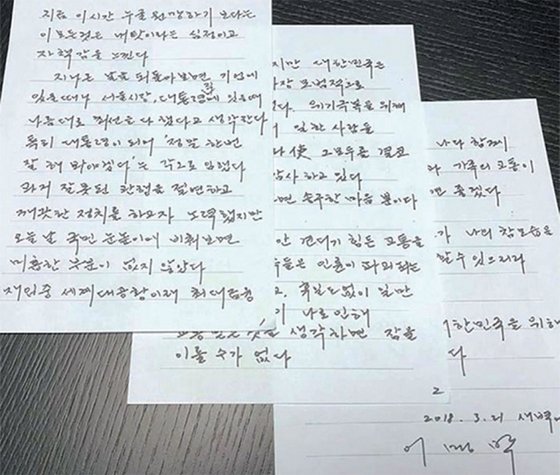 지금 이 시간 누굴 원망하기 보다는
이 모든것은 내탓이라는 심정이고
자책감을 느낀다
지나온 날을 되돌아보면, 기업에
있을때나 서울시장, 대통령직에 있을때
나름대로 최선을 다 했다고 생각한다
특히 대통령이 되어 '정말 한번
잘 해 봐야겠다'는 각오로 임했다
과거 잘못된 관행을 절연하고
깨끗한 정치를 하고자 노력했지만
오늘 날 국민 눈높이에 비춰보면
미흡한 부분이 없지 않았다
재임중 세계대공황이래 최대금융
지만 대한민국은
가장 모범적으로
다. 위기극복을 위해
이 일한 사람들
나 使 그 모두를 결코
감사하고 있다
면 송구한 마음 뿐이다
안 견디기 힘든 고통을
들은 인륜이 파괴되는
고. 죽일도없이 일만
이 나로 인해
고통받는 것을 생각하면 잠을
이룰 수가 없다
나와 함께
와 가족의 고통이
면 좋겠다
가 나의 참모습을
할 수 있으리라
대한민국을 위해
다
2
2018. 3. 21 새벽
이 명 박